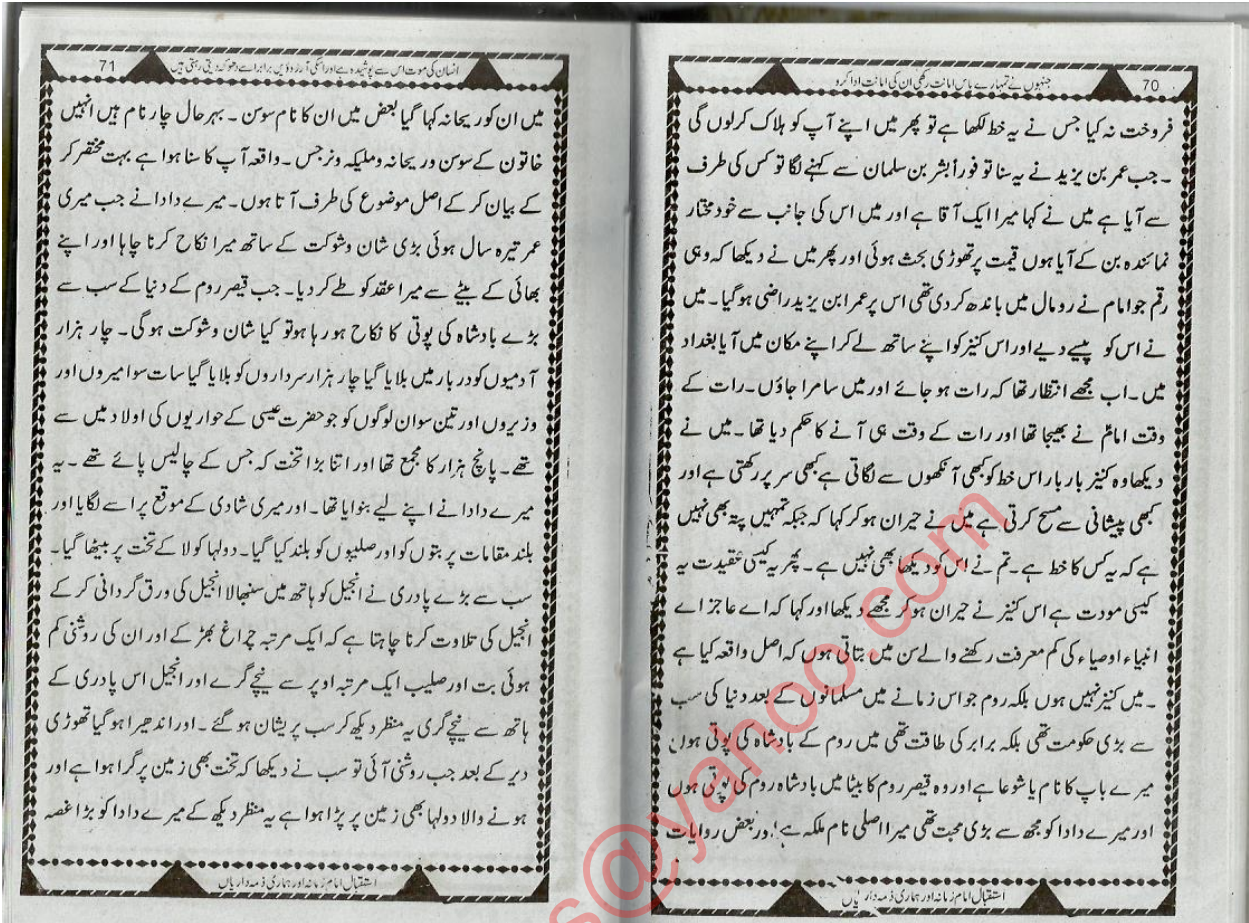 70
جنہوں نے تمہارے پاس امانت رکھی ان کی امانت ادا کرو
فروخت نہ کیا جس نے یہ خط لکھا ہے تو پھر میں اپنے آپ کو ہلاک کرلوں گی
۔ جب عمر بن یزید نے یہ سنا تو فوراً بشر بن سلمان سے کہنے لگا تو کس کی طرف
سے آیا ہے میں نے کہا میرا ایک آقا ہے اور میں اس کی جانب سے خود مختار
نمائندہ بن کے آیا ہوں قیمت پر تھوڑی بحث ہوئی اور پھر میں نے دیکھا کہ وہی
رقم جو امام نے رومال میں باندھ کر دی تھی اس پر عمر ابن یزید راضی ہوگیا۔ میں
نے اس کو پیسے دیے اور اس کنیز کو اپنے ساتھ لے کر اپنے مکان میں آیا بغداد
میں۔ اب مجھے انتظار تھا کہ رات ہو جائے اور میں سامرا جاؤں۔ رات کے
وقت امامؑ نے بھیجا تھا اور رات کے وقت ہی آنے کا حکم دیا تھا۔ میں نے
دیکھا وہ کنیز بار بار اس خط کو کبھی آنکھوں سے لگاتی ہے کبھی سر پر رکھتی ہے اور
کبھی پیشانی سے مسح کرتی ہے میں نے حیران ہو کر کہا کہ جبکہ تمہیں پتہ بھی نہیں
ہے کہ یہ کس کا خط ہے۔ تم نے اس کو دیکھا بھی نہیں ہے۔ پھر یہ کیسی عقیدت یہ
کیسی مودت ہے اس کنیز نے حیران ہو کر مجھے دیکھا اور کہا کہ اے عاجز اے
انبیاء اوصیاء کی کم معرفت رکھنے والے سن میں بتاتی ہوں کہ اصل واقعہ کیا ہے
۔ میں کنیز نہیں ہوں بلکہ روم جو اس زمانے میں مسلمانوں کے بعد دنیا کی سب
سے بڑی حکومت تھی بلکہ برابر کی طاقت تھی میں روم کے بادشاہ کی پوتی ہوں
میرے باپ کا نام یا شوعا ہے اور وہ قیصر روم کا بیٹا میں بادشاہ روم کی پوتی ہوں
اور میرے دادا کو مجھ سے بڑی محبت تھی میرا اصلی نام ملکہ ہے اور بعض روایات
استقبال امام زمانہ اور ہماری ذمہ داریاں
71
انسان کی موت اس سے پوشیدہ ہے اور اسکی آرزوئیں برابر اسے دھوکہ دیتی رہتی ہیں
میں ان کو ریحانہ کہا گیا بعض میں ان کا نام سوسن۔ بہر حال چار نام ہیں انہیں
خاتون کے سوسن و ریحانہ و ملیکہ و نرجس۔ واقعہ آپ کا سنا ہوا ہے بہت مختصر کر
کے بیان کر کے اصل موضوع کی طرف آتا ہوں۔ میرے دادا نے جب میری
عمر تیرہ سال ہوئی بڑی شان وشوکت کے ساتھ میرا نکاح کرنا چاہا اور اپنے
بھائی کے بیٹے سے میرا عقد کو طے کر دیا۔ جب قیصر روم کے دنیا کے سب سے
بڑے بادشاہ کی پوتی کا نکاح ہو رہا ہو تو کیا شان وشوکت ہوگی۔ چار ہزار
آدمیوں کو دربار میں بلایا گیا چار ہزار سرداروں کو بلایا گیا سات سو امیروں اور
وزیروں اور تین سو ان لوگوں کو جو حضرت عیسی کے حواریوں کی اولاد میں سے
تھے۔ پانچ ہزار کا مجمع تھا اور اتنا بڑا تخت کہ جس کے چالیس پائے تھے۔ یہ
میرے دادا نے اپنے لیے بنوایا تھا۔ اور میری شادی کے موقع پر اسے لگایا اور
بلند مقامات پر بتوں کو اور صلیبوں کو بلند کیا گیا۔ دولہا کو لا کے تخت پر بیٹھا گیا۔
سب سے بڑے پادری نے انجیل کو ہاتھ میں سنبھالا انجیل کی ورق گردانی کر کے
انجیل کی تلاوت کرنا چاہتا ہے کہ ایک مرتبہ چراغ بھڑ کے اور ان کی روشنی کم
ہوئی بت اور صلیب ایک مرتبہ اوپر سے نیچے گرے اور انجیل اس پادری کے
ہاتھ سے نیچے گری یہ منظر دیکھ کر سب پریشان ہو گئے۔ اور اندھیرا ہو گیا تھوڑی
دیر کے بعد جب روشنی آئی تو سب نے دیکھا کہ تخت بھی زمین پر گرا ہوا ہے اور
ہونے والا دولہا بھی زمین پر پڑا ہوا ہے یہ منظر دیکھ کے میرے دادا کو بڑا غصہ
استقبال امام زمانہ اور ہماری ذمہ داریاں
s@yahoo.com